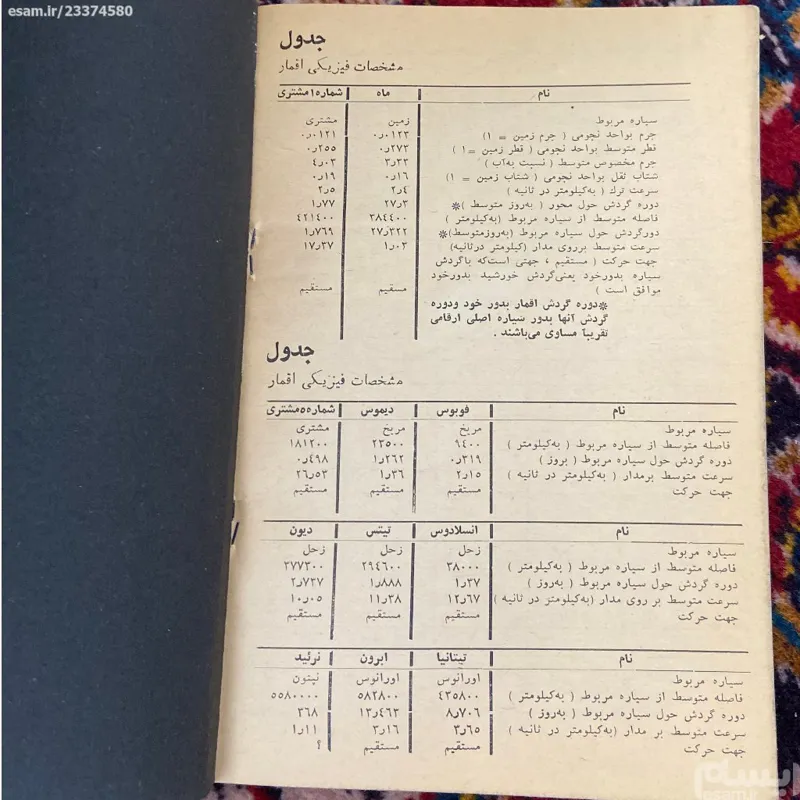 esam.ir/23374580
جدول
مشخصات فیزیکی اقمار
نام | ماه | شماره ۱ مشتری
سیاره مربوط | زمین | مشتری
جرم بواحد نجومی ( جرم زمین = ۱) | ۰٫۰۱۲۳ | ۰٫۰۱۲۱
قطر متوسط بواحد نجومی ( قطر زمین =۱ ) | ۰٫۲۷۳ | ۰٫۲۵۵
جرم مخصوص متوسط ( نسبت به‌آب ) | ۳٫۳۳ | ۴٫۰۳
شتاب ثقل بواحد نجومی ( شتاب زمین = ۱) | ۰٫۱۶ | ۰٫۱۹
سرعت ترک ( به‌کیلومتر در ثانیه ) | ۲٫۴ | ۲٫۵
دوره گردش حول محور ( به‌روز متوسط )* | ۲۷٫۳ | ۱٫۷۷
فاصله متوسط از سیاره مربوط (به‌کیلومتر ) | ۳۸۴۴۰۰ | ۴۲۱۴۰۰
دورگردش حول سیاره مربوط (به‌روزمتوسط)* | ۲۷٫۳۲۲ | ۱٫۷۶۹
سرعت متوسط برروی مدار (کیلومتر درثانیه) | ۱٫۰۳ | ۱۷٫۳۷
جهت حرکت ( مستقیم ، جهتی است‌که باگردش
سیاره بدورخود یعنی‌گردش خورشید بدورخود
موافق است ) | مستقیم | مستقیم
*دوره گردش اقمار بدور خود ودوره
گردش آنها بدور سیاره اصلی ارقامی
تقریباً مساوی می‌باشند .
جدول
مشخصات فیزیکی اقمار
نام | فوبوس | دیموس | شماره ۵ مشتری
سیاره مربوط | مریخ | مریخ | مشتری
فاصله متوسط از سیاره مربوط ( به‌کیلومتر ) | ۹۴۰۰ | ۲۳۵۰۰ | ۱۸۱۲۰۰
دوره گردش حول سیاره مربوط ( بروز ) | ۰٫۳۱۹ | ۱٫۲۶۲ | ۰٫۴۹۸
سرعت متوسط برمدار ( به‌کیلومتر در ثانیه ) | ۲٫۱۵ | ۱٫۳۶ | ۲۶٫۵۳
جهت حرکت | مستقیم | مستقیم | مستقیم
نام | انسلادوس | تیتس | دیون
سیاره مربوط | زحل | زحل | زحل
فاصله متوسط از سیاره مربوط ( به‌کیلومتر ) | ۳۸۰۰۰ | ۲۹۴۶۰۰ | ۳۷۷۳۰۰
دوره گردش حول سیاره مربوط ( به‌روز ) | ۱٫۳۷ | ۱٫۸۸۸ | ۲٫۷۳۷
سرعت متوسط بر روی مدار (به‌کیلومتر در ثانیه ) | ۱۲٫۶۷ | ۱۱٫۳۸ | ۱۰٫۰۵
جهت حرکت | مستقیم | مستقیم | مستقیم
نام | تیتانیا | ابرون | نرئید
سیاره مربوط | اورانوس | اورانوس | نپتون
فاصله متوسط از سیاره مربوط ( به‌کیلومتر ) | ۴۳۵۸۰۰ | ۵۸۲۸۰۰ | ۵۵۸۰۰۰۰
دوره گردش حول سیاره مربوط ( به‌روز ) | ۸٫۷۰۶ | ۱۳٫۴۶۳ | ۳۶۸
سرعت متوسط بر مدار (به‌کیلومتر در ثانیه ) | ۳٫۶۵ | ۳٫۱۶ | ۱٫۱۱
جهت حرکت | مستقیم | مستقیم | ؟
ایسام
esam.ir